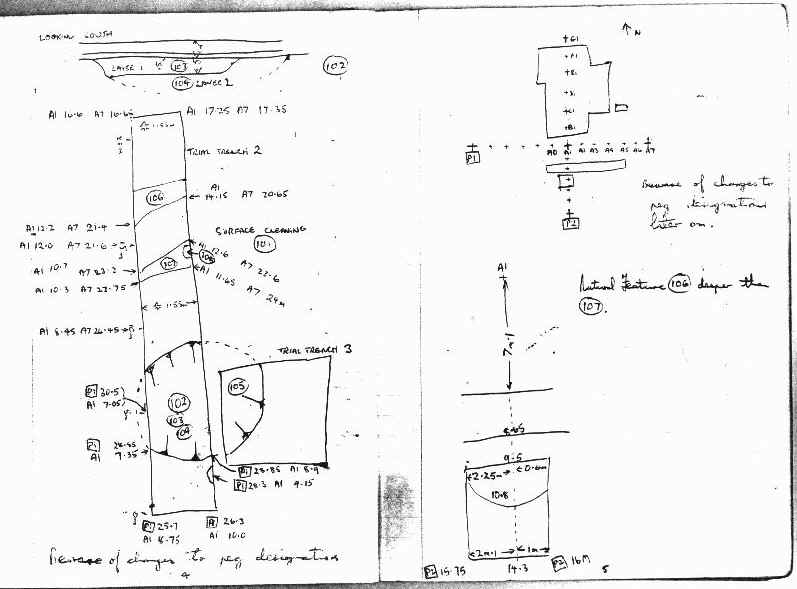 LOOKING SOUTH
LAYER 1 103
104 LAYER 2
102
A1 16.6 A7 16.65
A1 17.25 A7 17.35
1.55m
TRIAL TRENCH 2
106
A1
14.15 A7 20.65
A1 12.2 A7 21.4
A1 12.0 A7 21.6
SURFACE CLEANING
101
A1 12.6
A7 22.6
107
A1 11.65
A7 24m
A1 10.7 A7 23.2
A1 10.3 A7 23.75
1.55m
A1 8.45 A7 26.45
TRIAL TRENCH 3
105
P1 30.5
A1 7.05
102
103
104
P1 28.85
A1 9.35
P1 28.85 A1 8.9
P1 28.3 A1 9.15
P1 25.7
A1 8.75
A1 10.0
Beware of changes to peg designations
4
N
P1
A0 A1 A2 A3 A4 A5 A6 A7
P2
Beware of changes to
peg designations
later on.
A1
7m.1
Natural Feature 106 deeper than
107.
9.5
2.25m 0.6m
10.8
2m.1 1m
P2 15.75 14.3 P2 16M
5